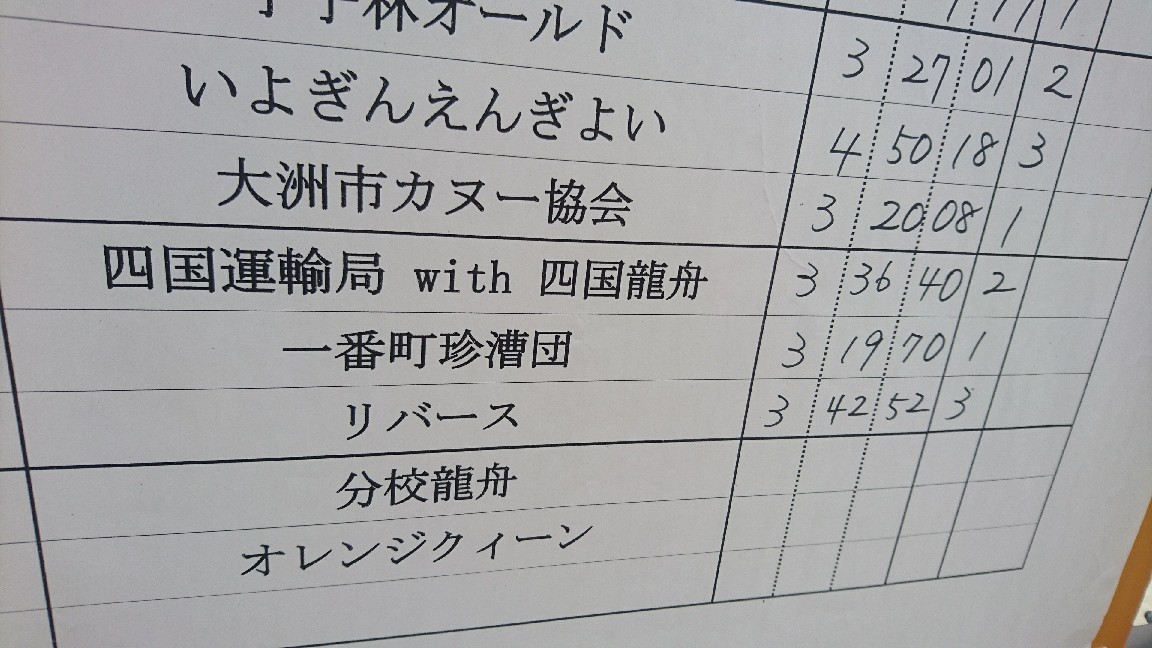 林オールド 3 27 01 2
いよぎんえんぎよい 4 50 18 3
大洲市カヌー協会 3 20 08 1
四国運輸局 with 四国龍舟 3 36 40 2
一番町珍漕団 3 19 70 1
リバース 3 42 52 3
分校龍舟
オレンジクィーン